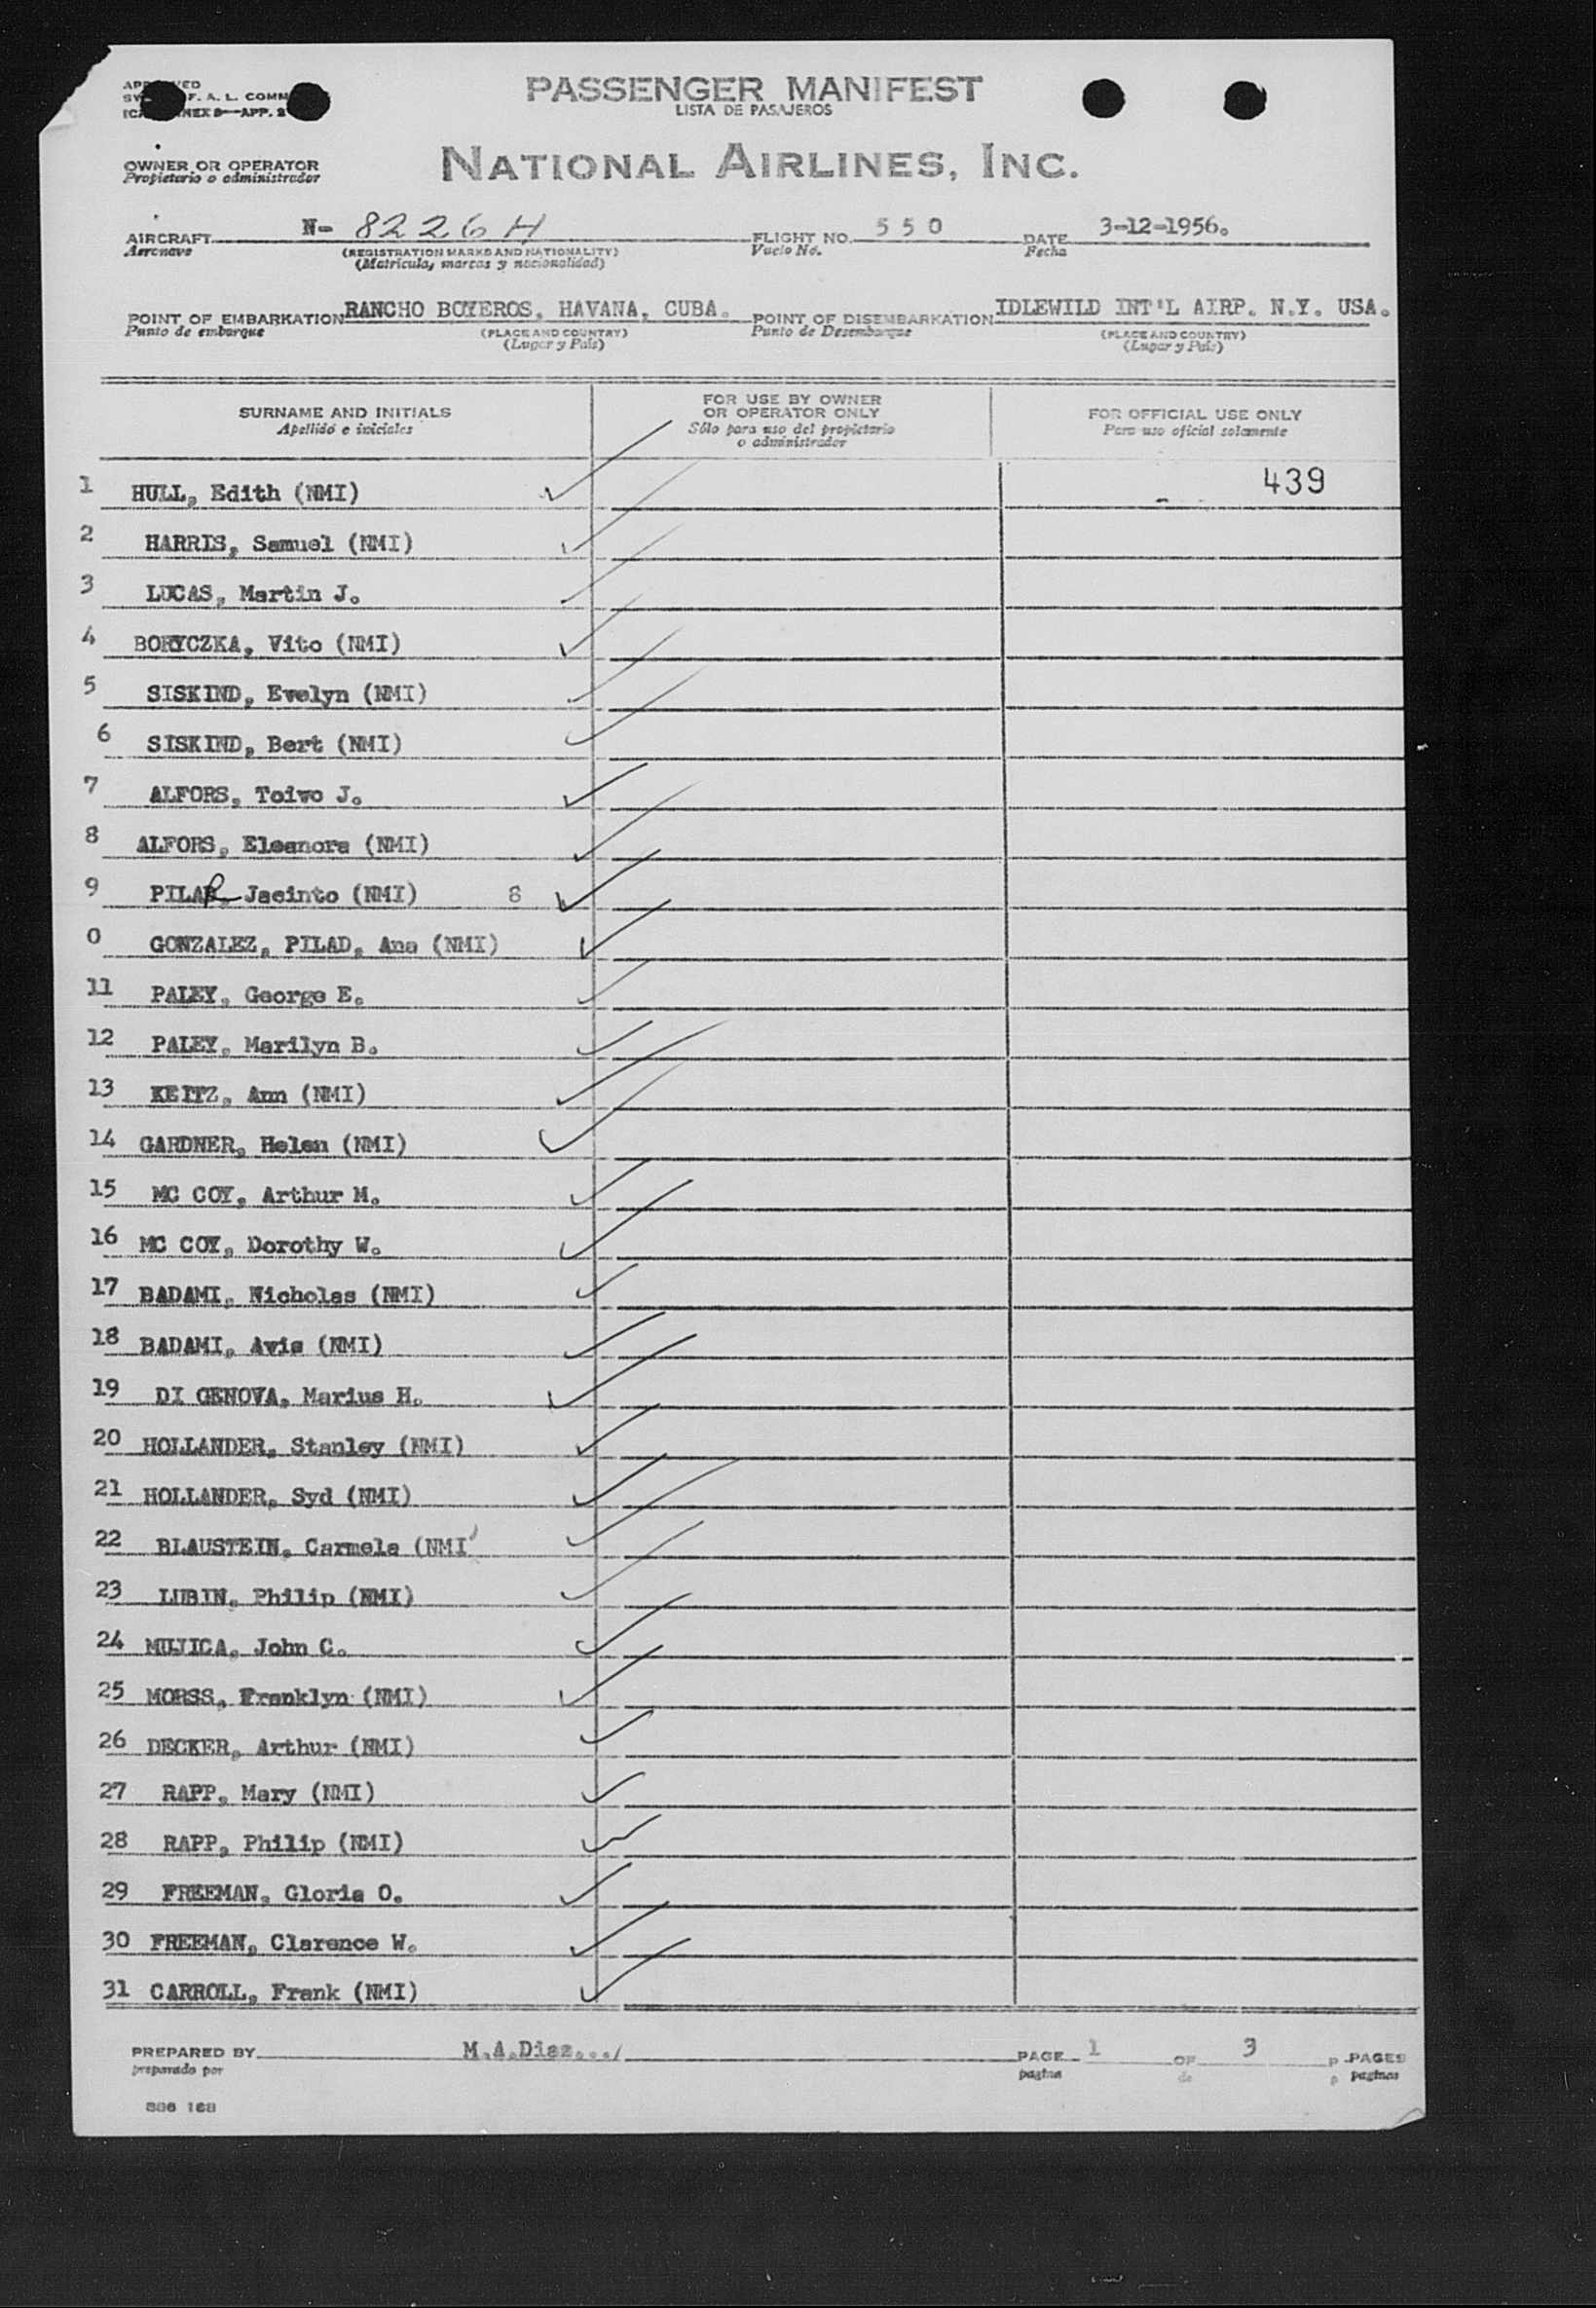 PASSENGER MANIFEST
LISTA DE PASAJEROS
F. A. L. COMM
APP.
OWNER OR OPERATOR
Propietario o administrador
NATIONAL AIRLINES, INC.
AIRCRAFT N- 8226H FLIGHT NO. 550 DATE 3-12-1956.
Aeronave (REGISTRATION MARKS AND NATIONALITY) Vuelo No. Fecha
(Matricula, marcas y nacionalidad)
POINT OF EMBARKATION RANCHO BOYEROS, HAVANA, CUBA. POINT OF DISEMBARKATION IDLEWILD INT'L AIRP. N.Y. USA.
Punto de embarque (PLACE AND COUNTRY) Punto de Desembarque (PLACE AND COUNTRY)
(Lugar y País) (Lugar y País)
SURNAME AND INITIALS FOR USE BY OWNER OR OPERATOR ONLY FOR OFFICIAL USE ONLY
Apellido e iniciales Sólo para uso del propietario o administrador Para uso oficial solamente
1 HULL, Edith (NMI) 439
2 HARRIS, Samuel (NMI)
3 LUCAS, Martin J.
4 BORYCZKA, Vito (NMI)
5 SISKIND, Evelyn (NMI)
6 SISKIND, Bert (NMI)
7 ALFORS, Toivo J.
8 ALFORS, Eleanora (NMI)
9 PILAR, Jacinto (NMI) 8
0 GONZALEZ, PILAD, Ana (NMI)
11 PALEY, George E.
12 PALEY, Marilyn B.
13 KEITZ, Ann (NMI)
14 GARDNER, Helen (NMI)
15 MC COY, Arthur M.
16 MC COY, Dorothy W.
17 BADAMI, Nicholas (NMI)
18 BADAMI, Avis (NMI)
19 DI GENOVA, Marius H.
20 HOLLANDER, Stanley (NMI)
21 HOLLANDER, Syd (NMI)
22 BLAUSTEIN, Carmela (NMI)
23 LUBIN, Philip (NMI)
24 MUJICA, John C.
25 MORSS, Franklyn (NMI)
26 DECKER, Arthur (NMI)
27 RAPP, Mary (NMI)
28 RAPP, Philip (NMI)
29 FREEMAN, Gloria O.
30 FREEMAN, Clarence W.
31 CARROLL, Frank (NMI)
PREPARED BY M.A.Diaz.../ PAGE 1 OF 3 PAGES
preparado por pagina de paginas